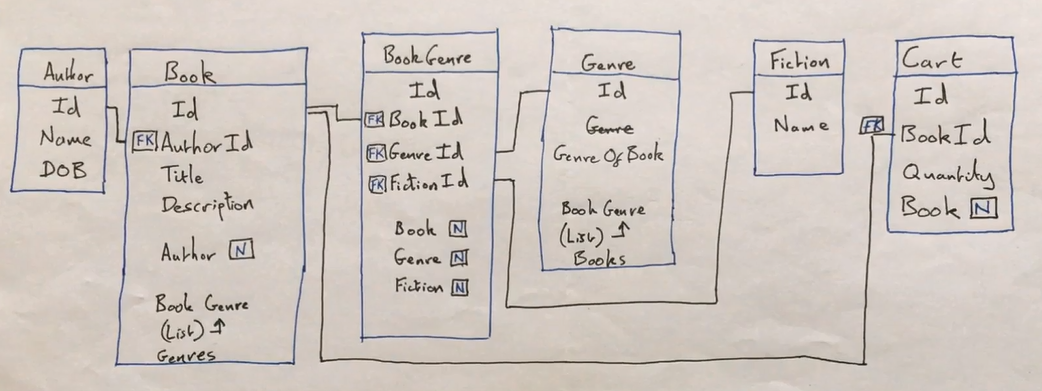 Author
Id
Name
DOB
Book
Id
FK AuthorId
Title
Description
Author N
Book Genre
(List) ↑
Genres
BookGenre
Id
FK BookId
FK GenreId
FK FictionId
Book N
Genre N
Fiction N
Genre
Id
Genre
Genre Of Book
Book Genre
(List) ↑
Books
Fiction
Id
Name
Cart
Id
FK BookId
Quantity
Book N